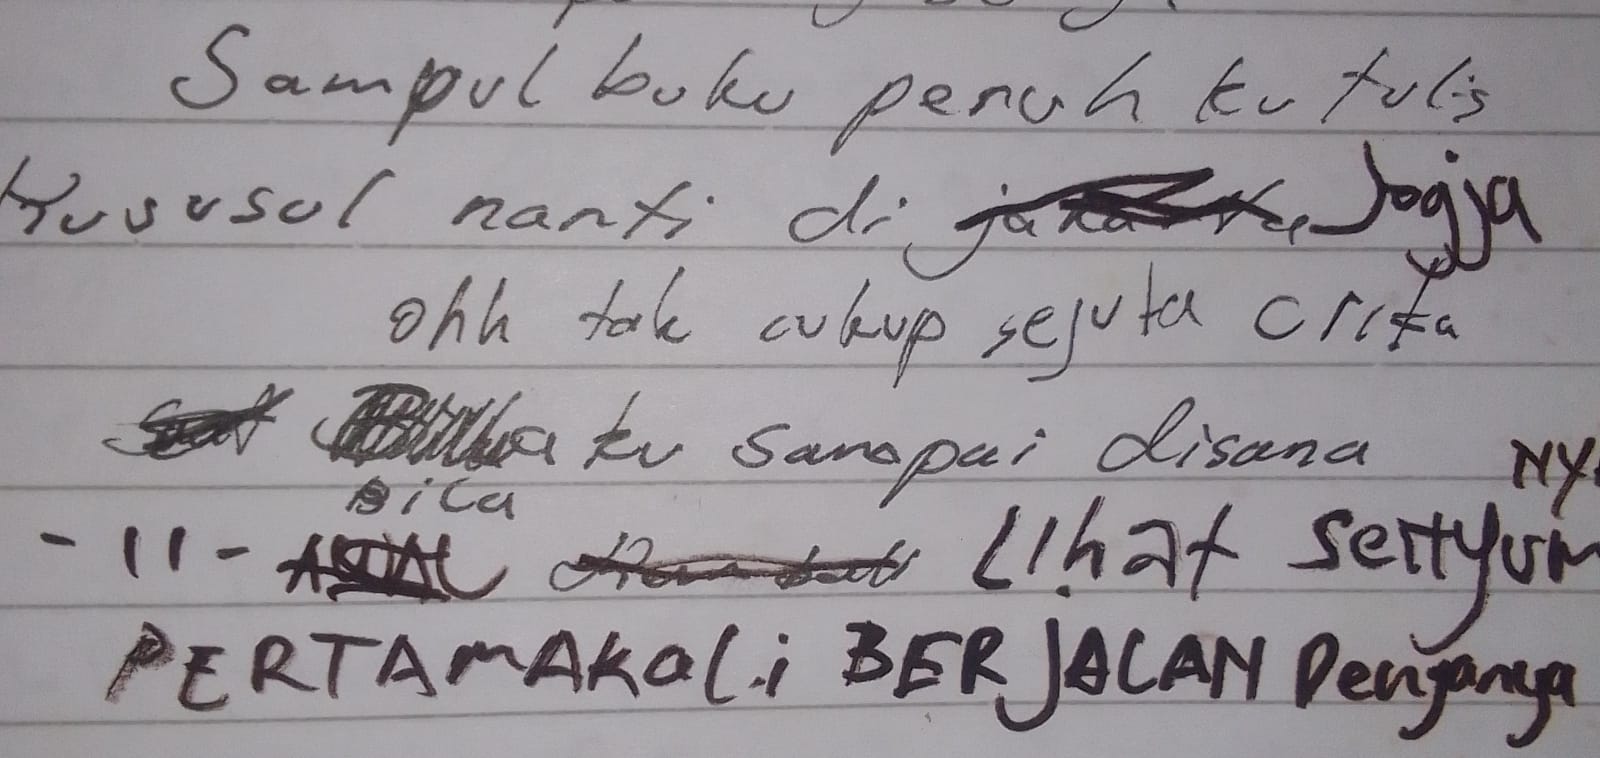 Sampul buku penuh ku tulis
Kususul nanti di Jogja
ohh tak cukup sejuta crita
ku sampai disana
bila
- 11 - Lihat senyum NY
PERTAMAKALi BERJALAN Denganya